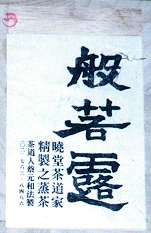 般若露
曉堂茶道家
精製之蒸茶
茶道人蔡元和法製